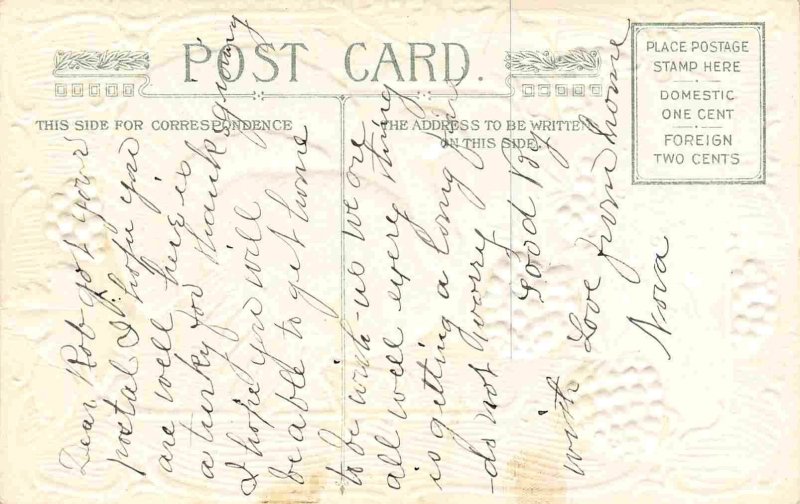 POST CARD.
THIS SIDE FOR CORRESPONDENCE
THE ADDRESS TO BE WRITTEN
ON THIS SIDE.
PLACE POSTAGE
STAMP HERE
DOMESTIC
ONE CENT
FOREIGN
TWO CENTS
Dear Rob got your
postal I hope you
are well here is
a turky for thanksgiving
I hope you will
be able to get home
to be with us we are
all well every thing
is getting a long fine
do not worry
Good By
with Love from home
Nova